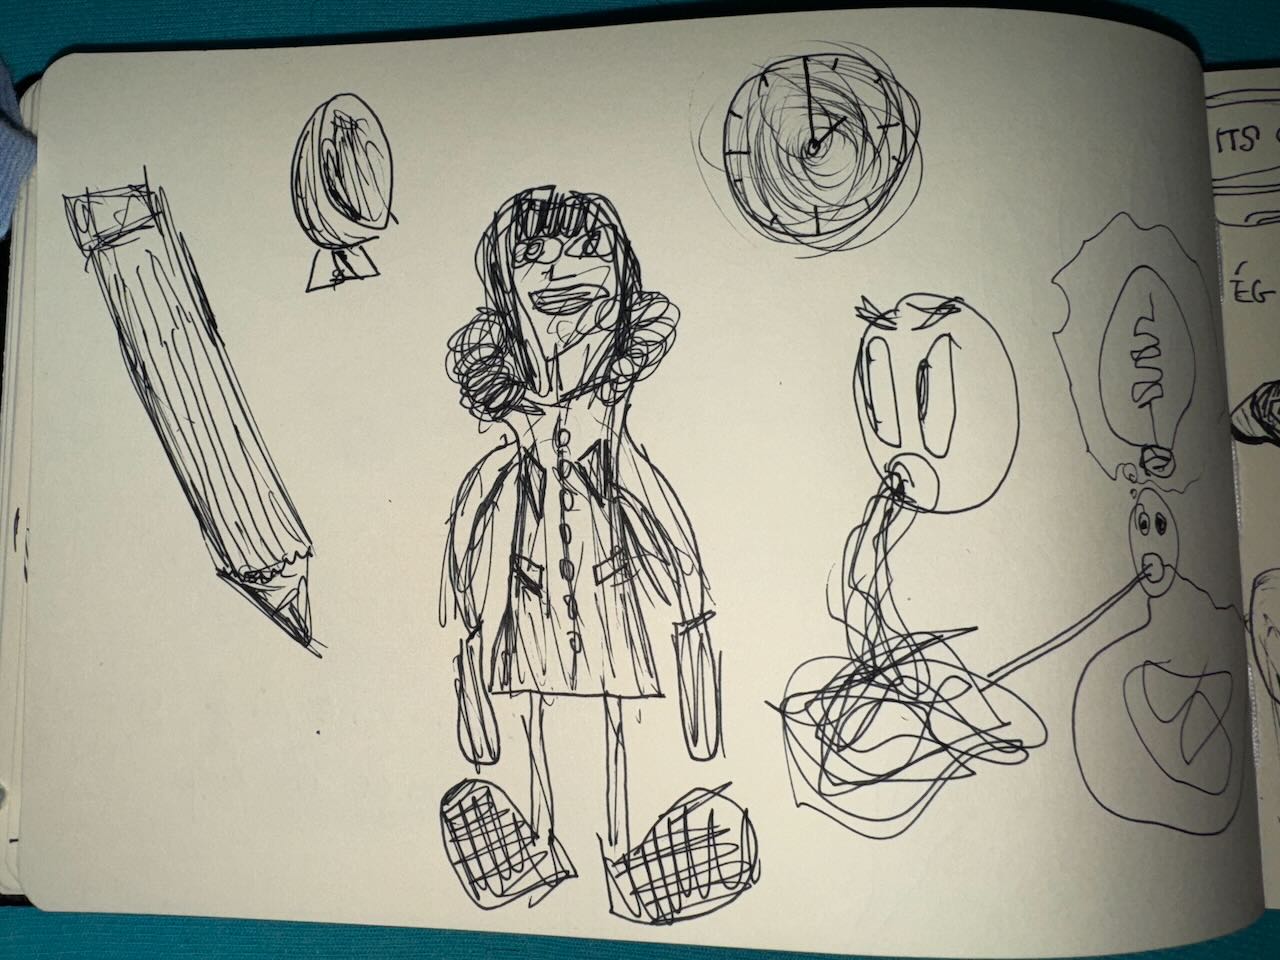 ITS
ÉG